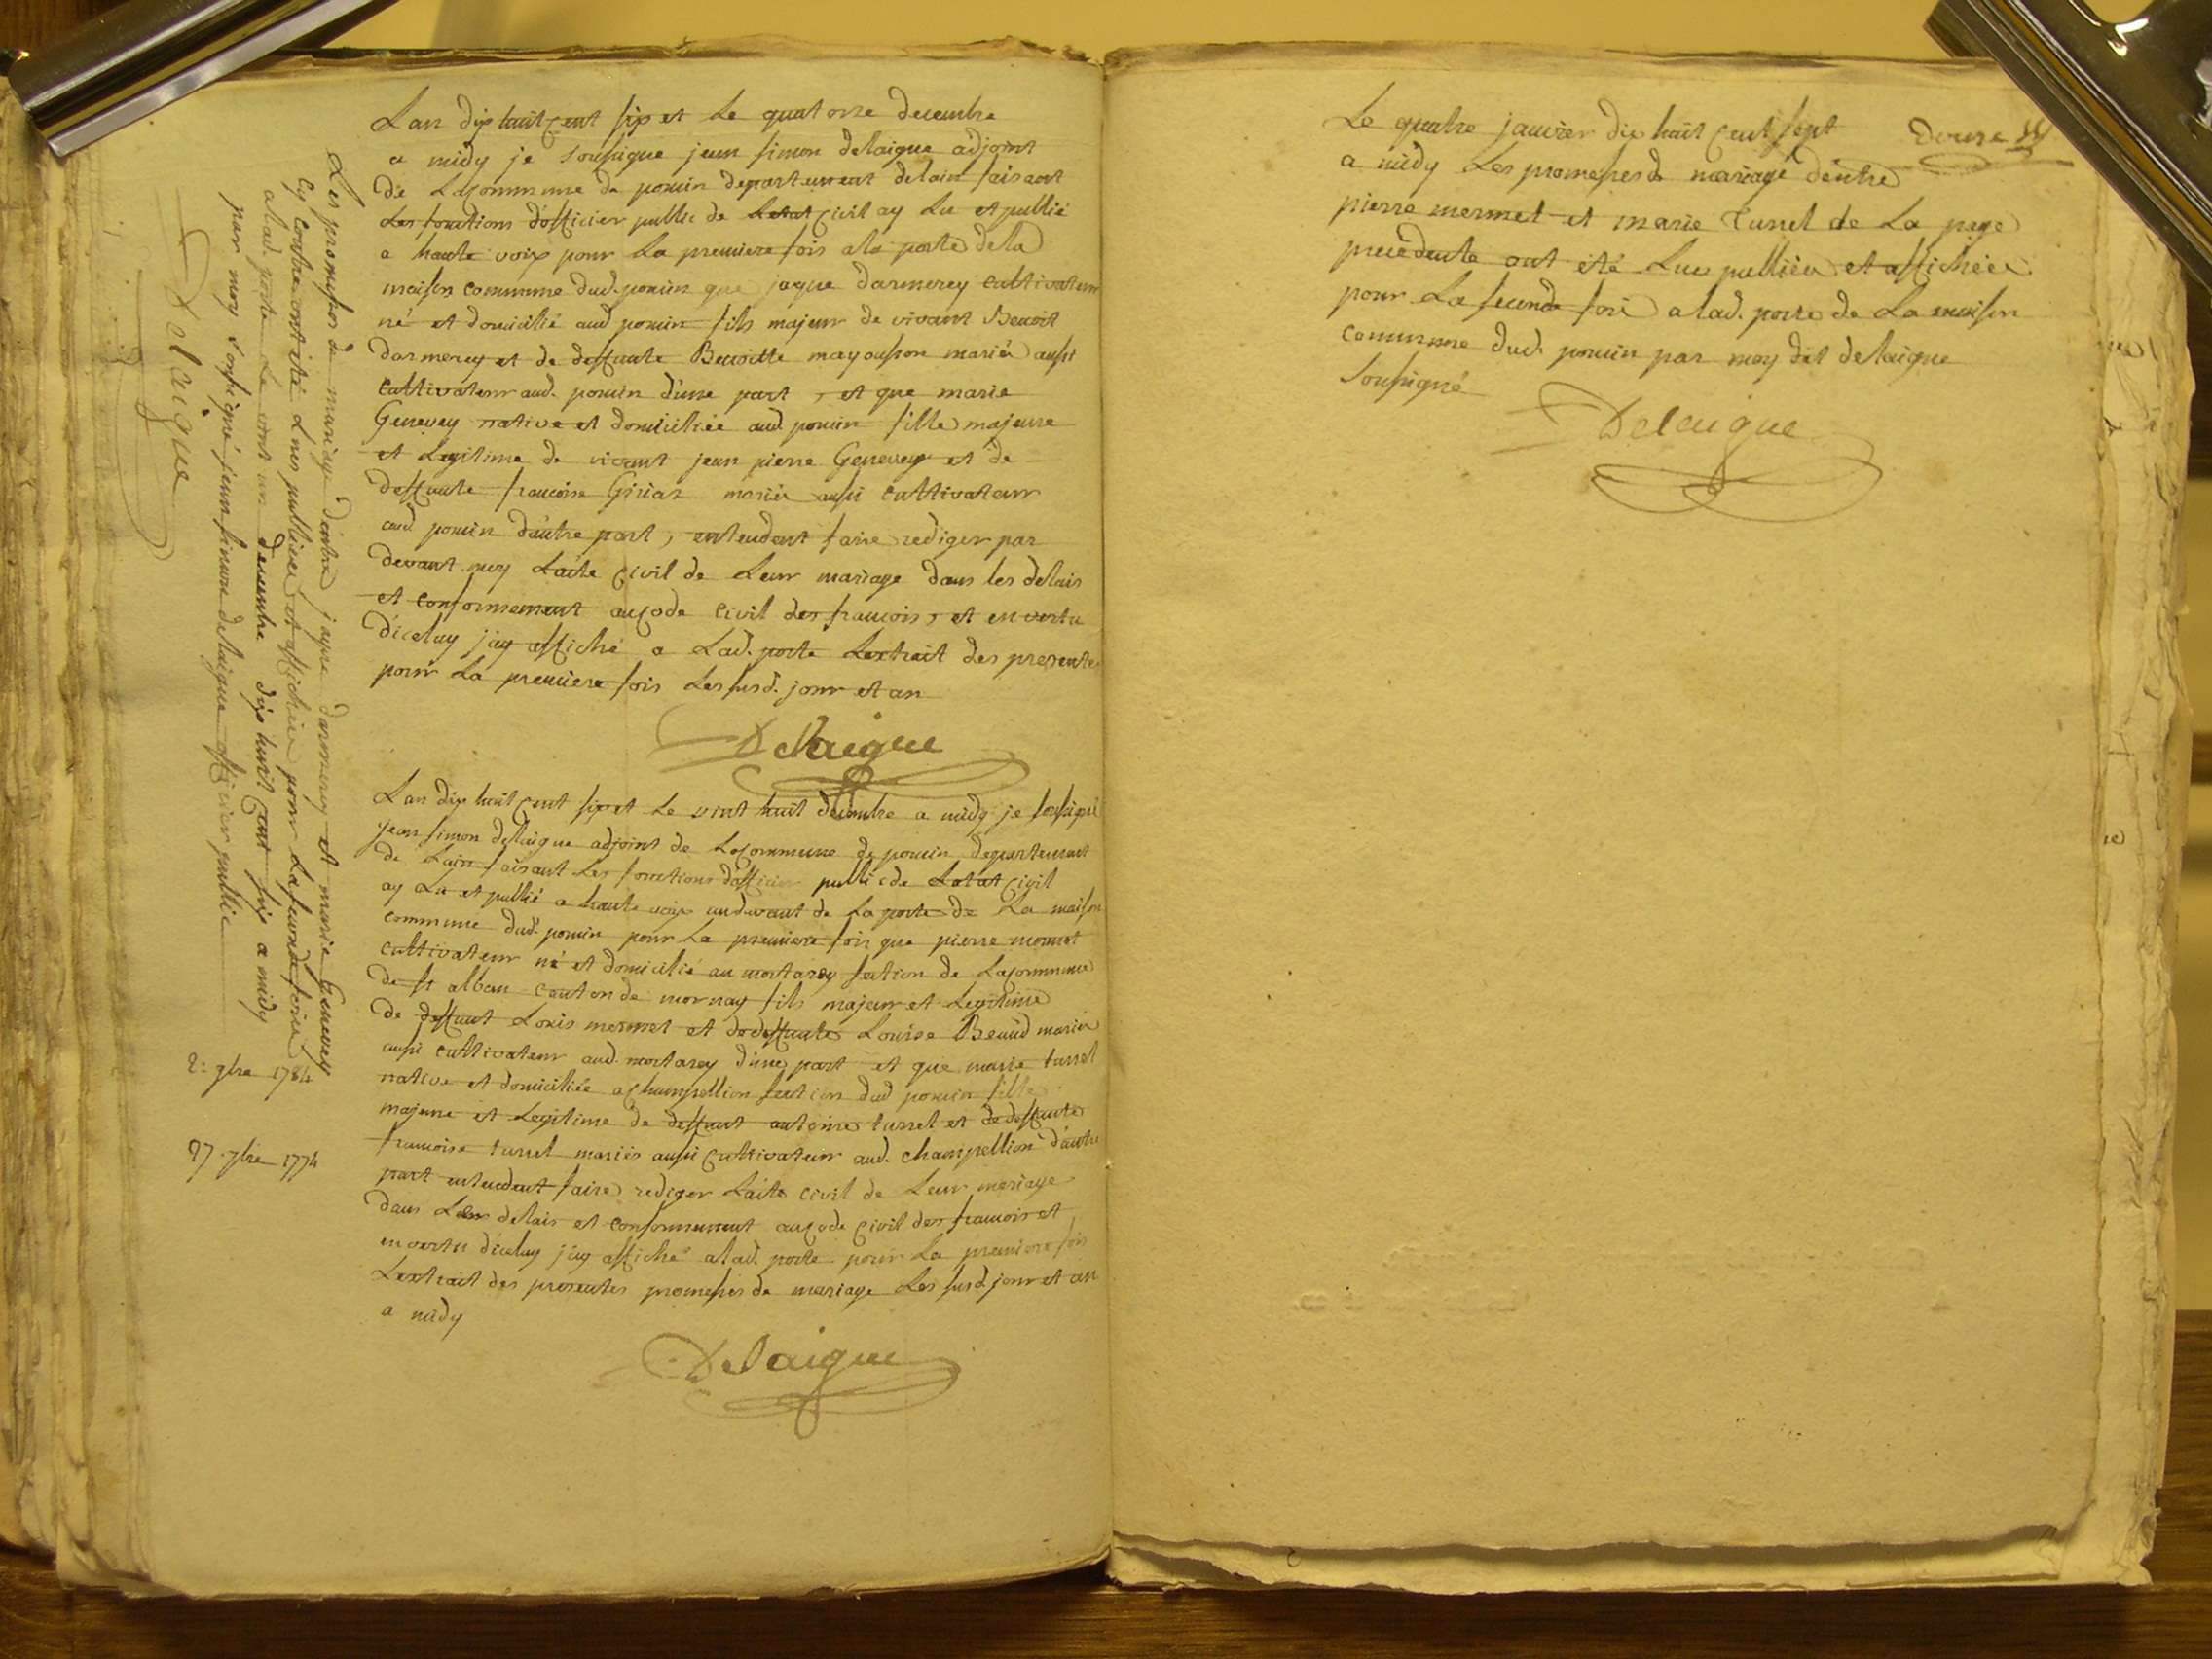 Lan dix huit cent six et le quatorze decembre
a midy je soussigne jean simon delaigue adjoint
de la commune de poncin departement de lain faisant
les fonctions d'officier public de letat civil ay lu et publié
a haute voix pour la premiere fois a la porte de la
maison commune dud. poncin que jaque darmerey cultivateur
né et domicilié aud poncin fils majeur de vivant Benoit
darmerey et de deffunte Benoitte mayousson mariés aussi
cultivateur aud. poncin d'une part, et que marie
Genevey native et domiciliée aud poncin fille majeure
et Legitime de vivant jean pierre Genevey et de
deffunte francoise Giriaz mariés aussi cultivateur
aud poncin d'autre part, entendent faire rediger par
devant moy Laite civil de Leur mariage dans les delais
et conformement au code civil des francois, et en vertu
d'iceluy j'ay affiché a Lad. porte Lextrait des presentes
pour La premiere fois Les susd. jour et an
Delaigue
Lan dix huit cent six et Le vint huit decembre a midy je soussigné
jean simon delaigue adjoint de La commune de poncin departement
de Lain faisant Les fonctions d'officier public de Letat civil
ay Lu et publié a haute voix au devant de La porte de La maison
commune dud. poncin pour La premiere fois que pierre mermet
cultivateur né et domicilié au mortarey section de La commune
de st alban canton de mornay fils majeur et Legitime
de deffunt Louis mermet et de deffunte Louise Beaud mariés
aussi cultivateur aud. mortarey d'une part et que marie turrel
native et domiciliée a champellion section dud poncin fille
majeure et Legitime de deffunt antoine turrel et de deffunte
francoise turrel mariés aussi cultivateur aud. champellion d'autre
part entendent faire rediger Laite civil de Leur mariage
dans Les delais et conformement au code civil des francois et
en vertu d'iceluy j'ay affiché a lad. porte pour La premiere fois
Lextrait des presentes promesses de mariage Les susd. jour et an
a midy
Delaigue
Les promesses de mariage d'entre jaque darmerey et marie Genevey
cy contre ont été Lues publiées et affichées pour La seconde fois
a lad. porte Le vint un decembre dix huit cent six a midy
par moy soussigné jean simon delaigue officier public
Delaigue
2: 9bre 1784
27. 7bre 1774
Douze
Le quatre janvier dix huit cent sept
a midy Les promesses de mariage d'entre
pierre mermet et marie Turrel de La page
precedente ont été Lues publiées et affichées
pour La seconde fois a lad. porte de La maison
commune dud. poncin par moy dit delaigue
soussigné
Delaigue